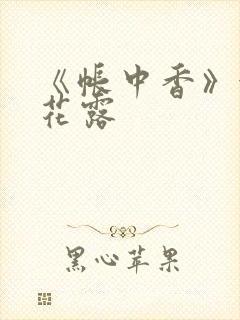 《帐中香》
花露
黑心苹果